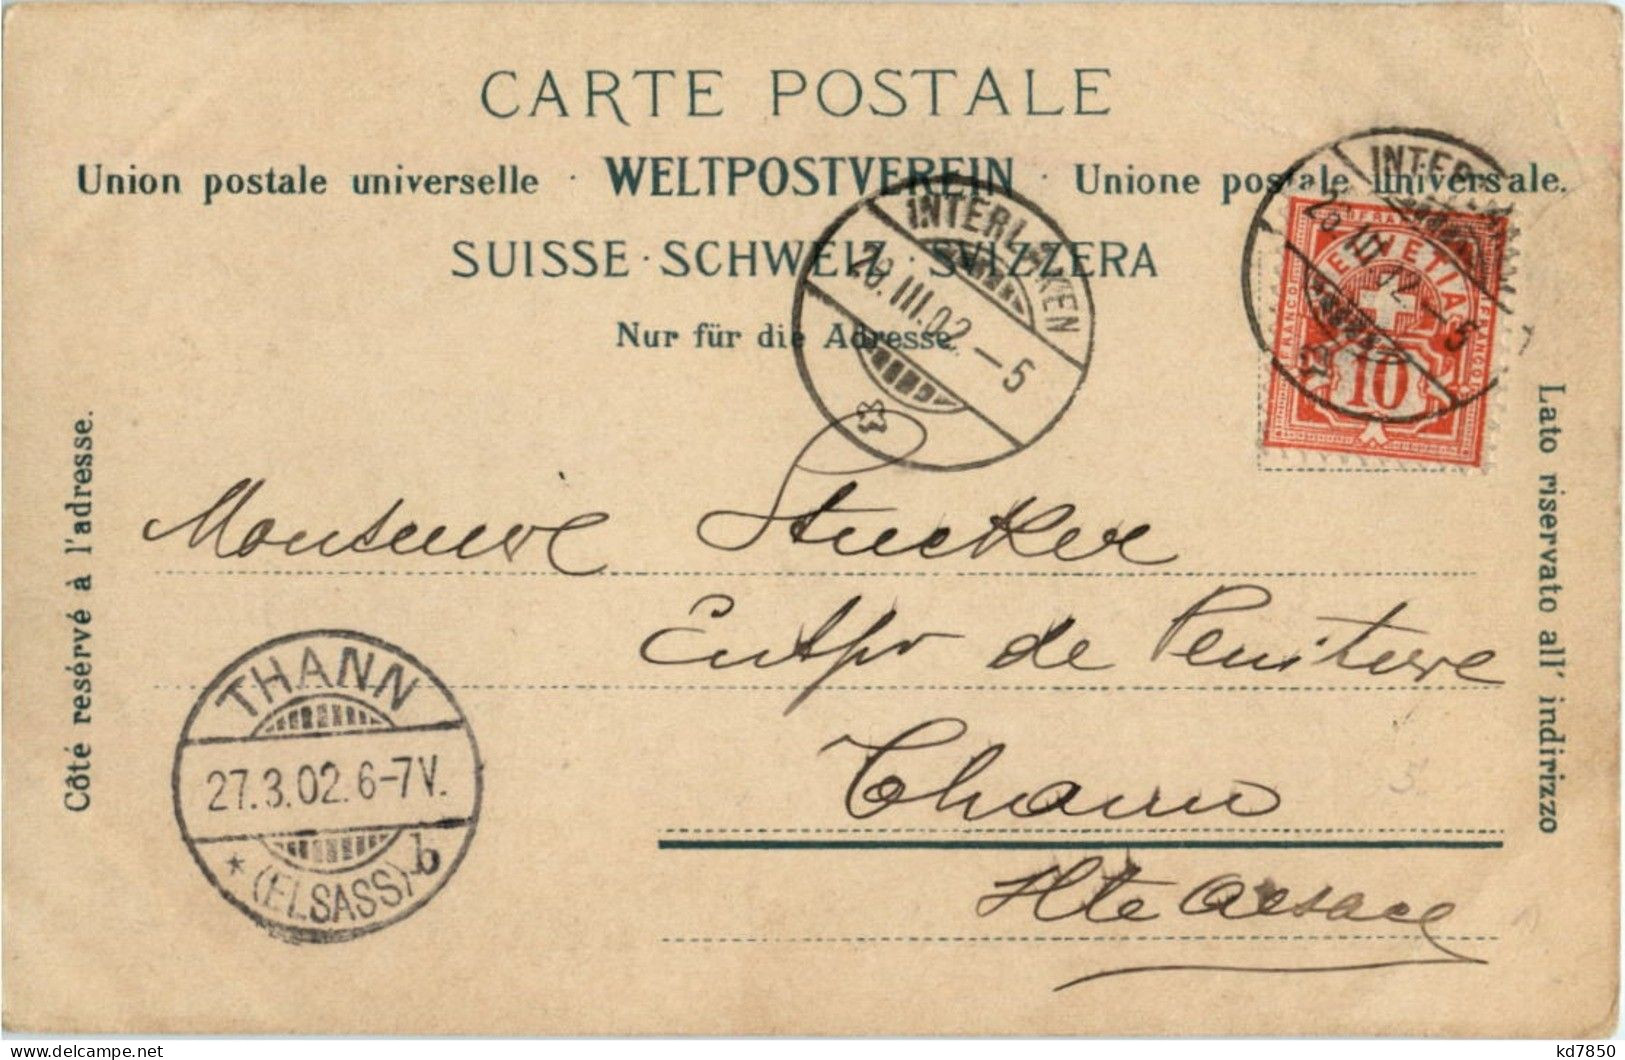 CARTE POSTALE
Union postale universelle · WELTPOSTVEREIN · Unione postale universale.
SUISSE · SCHWEIZ · SVIZZERA
Nur für die Adresse
INTERLAKEN
26.III.02–5
INTERL
26.III.02–5
FRANCO
HELVETIA
FRANCO
FRANCO
10
Côté resérvé à l'adresse.
Lato riservato all' indirizzo
Monsieur Stucker
de
Thann
Hte Alsace
THANN
27.3.02.6-7V.
* (ELSASS) b
delcampe.net
kd7850